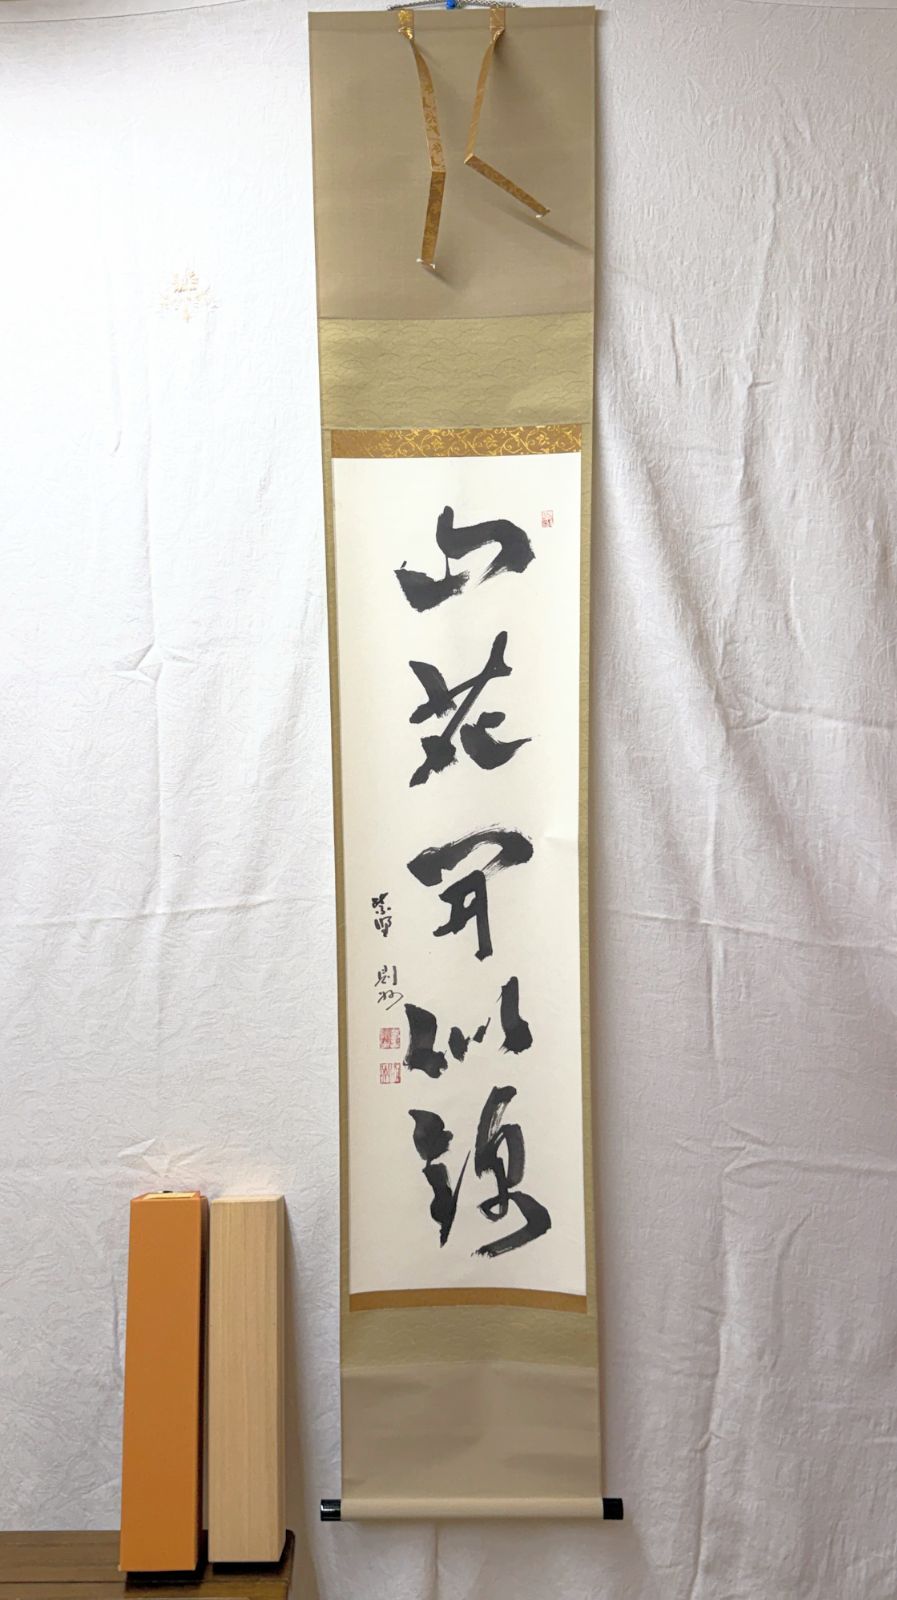 山花開似錦
紫野 剛山